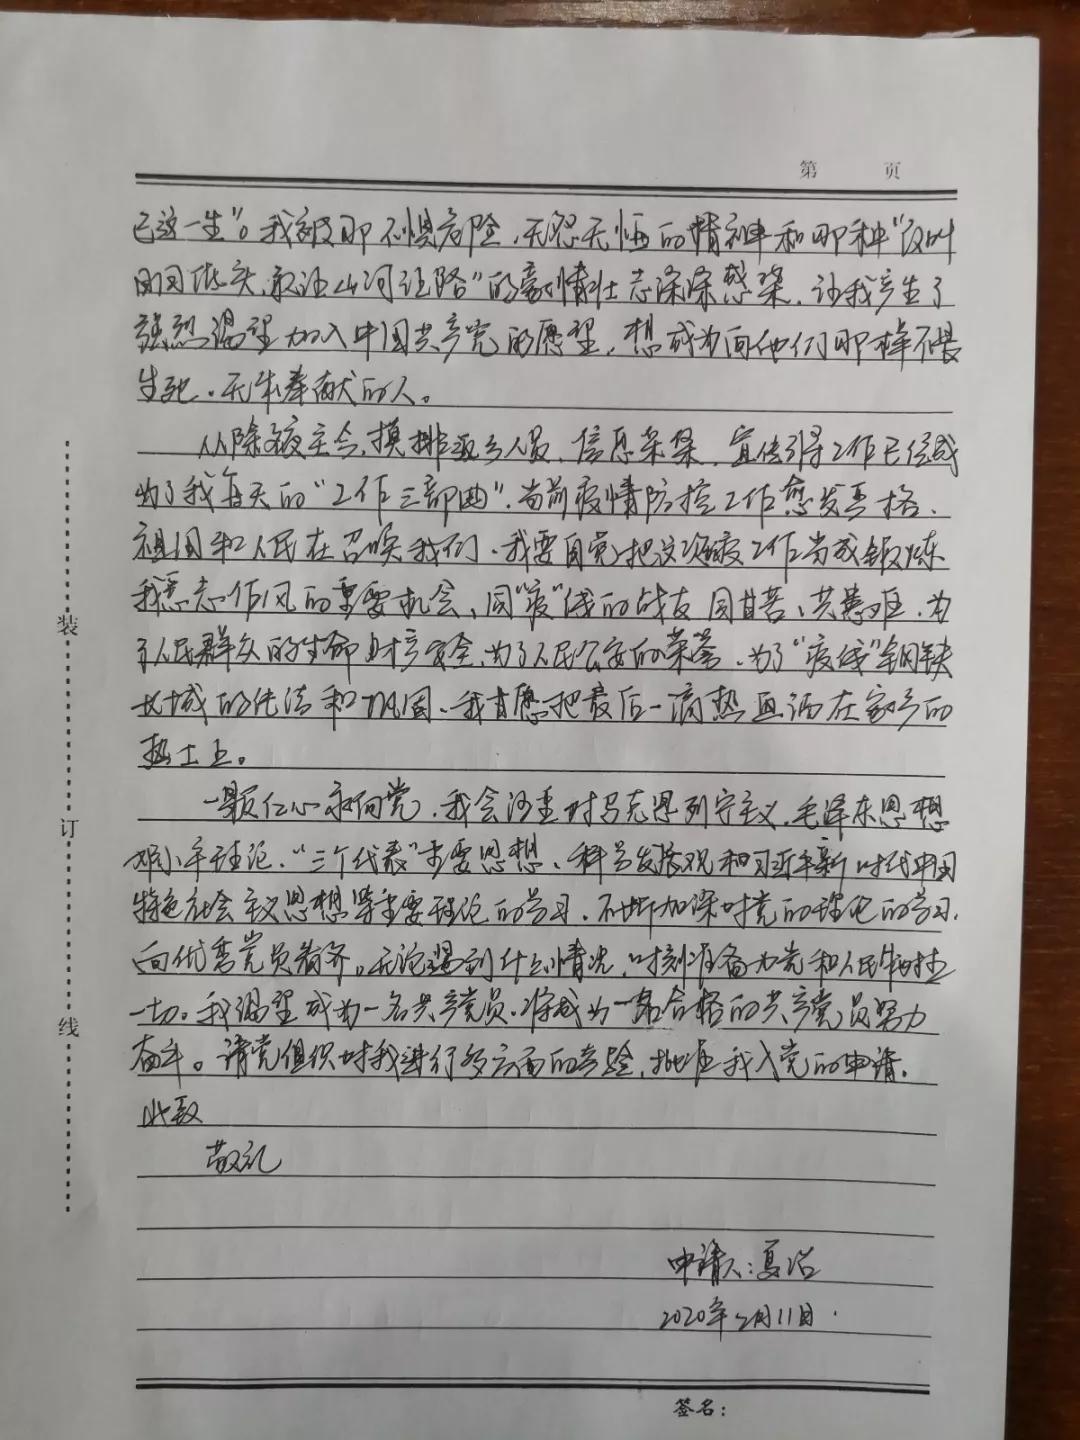 第 页
已这一生”。我被那不惧危险、无怨无悔的精神和那种“敢叫
日月低头,敢让山河让路”的豪情壮志深深感染,让我产生了
强烈渴望加入中国共产党的愿望,想成为向他们那样不畏
生死、无私奉献的人。
从除夕夜至今,摸排返乡人员、信息采集、宣传引导工作已经成
为了我每天的“工作三部曲”,当前疫情防控工作愈发严格,
祖国和人民在召唤我们、我要自觉把这次战疫工作当成锻炼
我意志作风的重要机会、同“疫”线的战友同甘苦、共患难,为
了人民群众的生命财产安全,为了人民公安的荣誉,为了“疫线”钢铁
长城的传承和巩固、我甘愿把最后一滴热血洒在家乡的
热土上。
一颗仁心永向党,我会注重对马克思列宁主义,毛泽东思想
邓小平理论,“三个代表”重要思想、科学发展观和习近平新时代中国
特色社会主义思想等重要理论的学习,不断加深对党的理论的学习,
向优秀党员看齐。无论遇到什么情况,时刻准备为党和人民牺牲
一切。我渴望成为一名共产党员,将成为一名合格的共产党员努力
奋斗。请党组织对我进行多方面的考验,批准我入党的申请。
此致
敬礼
申请人:夏
2020年2月11日.
签名:
装
订
线